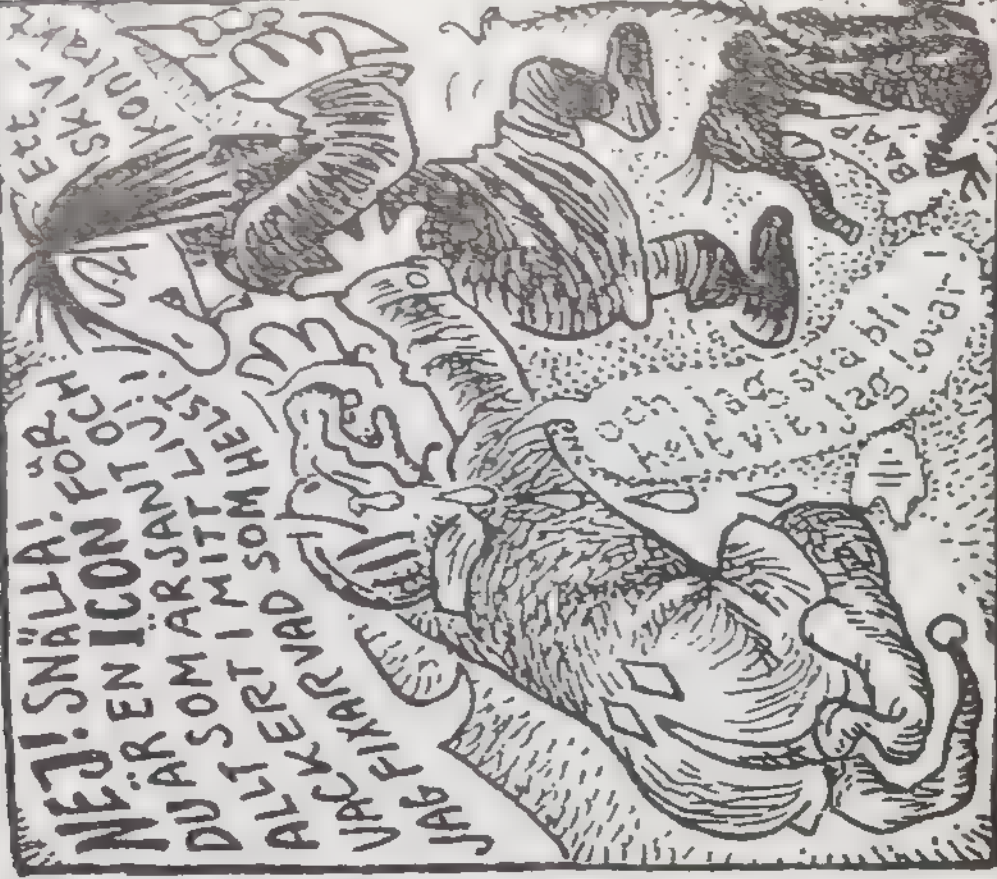 Ett
NEJ! SNÄLLA!
DU ÄR EN ICON FÖR
ALLT SOM ÄR SANT OCH
VACKERT I MITT LIV!
JAG FIXAR VAD SOM HELST!
och jag ska bli
helt vit, jag lovar